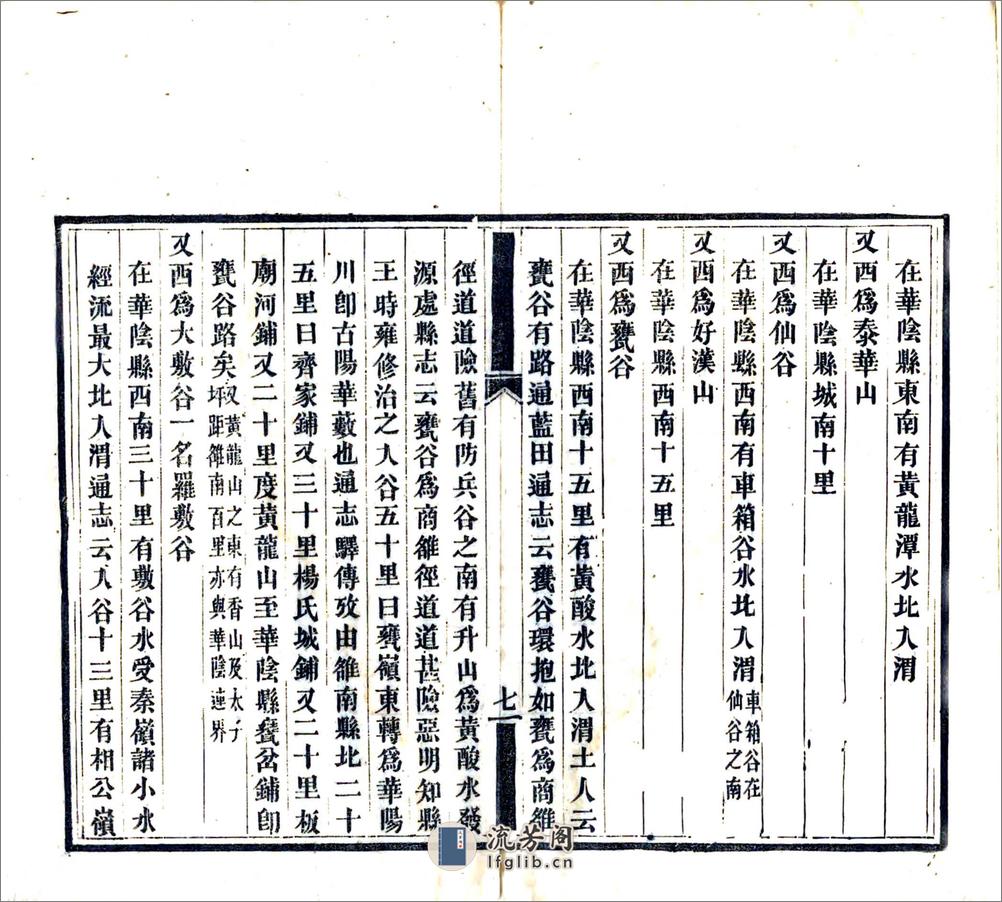 在華陰縣東南有黃龍潭水北入渭
又西爲泰華山
在華陰縣城南十里
又西爲仙谷
在華陰縣西南有車箱谷水北入渭車箱谷在仙谷之南
又西爲好漢山
在華陰縣西南十五里
又西爲甕谷
在華陰縣西南十五里有黃酸水北入渭土人云
甕谷有路通藍田通志云甕谷環抱如甕爲商雒
七
徑道道險舊有防兵谷之南有升山爲黃酸水發
源處縣志云甕谷爲商雒徑道道甚險惡明知縣
王時雍修治之入谷五十里曰甕嶺東轉爲華陽
川卽古陽華藪也通志驛傳攷由雒南縣北二十
五里曰齊家鋪又三十里楊氏城鋪又二十里板
廟河鋪又二十里度黃龍山至華陰縣甕岔鋪卽
甕谷路矣又黃龍山之東有香山及太子坪距雒南百里亦與華陰連界
又西爲大敷谷一名羅敷谷
在華陰縣西南三十里有敷谷水受秦嶺諸小水
經流最大北入渭通志云入谷十三里有相公嶺
流芳阁
lfglib.cn